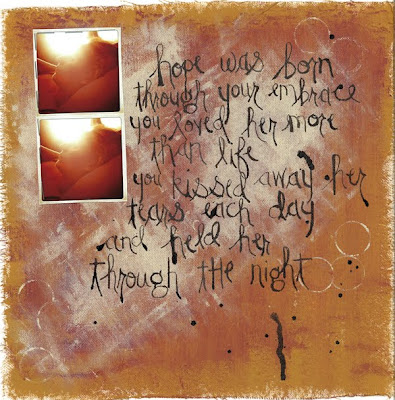 hope was born
through your embrace
you loved her more
than life
you kissed away her
tears each day
and held her
through the night